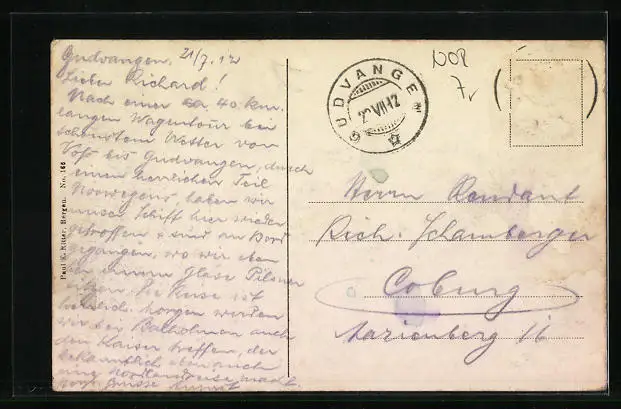 Gudvangen. 21/7.12
Lieber Richard!
Nach einer ca 40 km.
langen Wagentour bei
schönstem Wetter von
Voß bis Gudvangen, durch
einen herrlichen Teil
Norwegens, haben wir
unser Schiff hier wieder
getroffen & sind an Bord
gegangen, wo wir eben
bei einem Glase Pilsner
sitzen. Die Reise ist
herrlich. Morgen werden
wir bei Balholmen auch
den Kaiser treffen, der
bekanntlich eben auch
eine Nordlandreise macht.
Grüsse
Paul E. Ritter, Bergen. No. 166
GUDVANGEN
22 VII 12
NOR
7,-
Herrn Rendant
Rich. Schamberger
Coburg
Marienberg 16